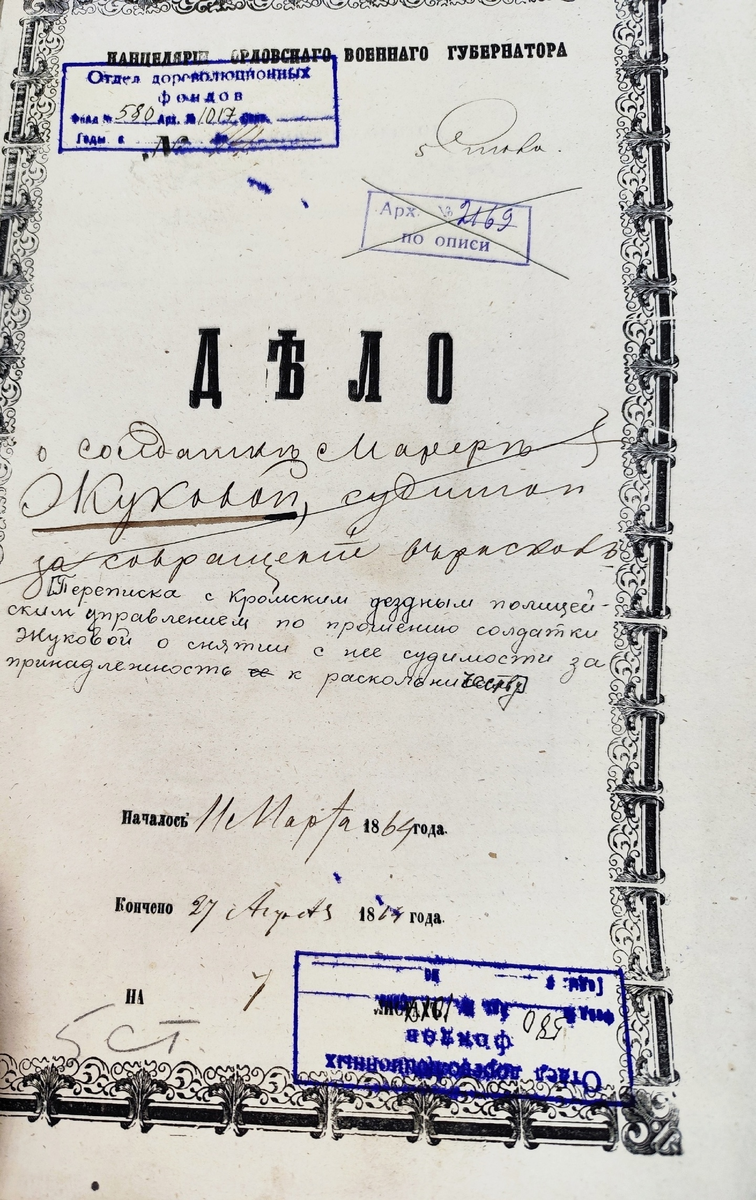 КАНЦЕЛЯРІИ ОРЛОВСКАГО ВОЕННАГО ГУБЕРНАТОРА
Отдел дореволюционных
фондов
Фонд № 580 Арх. № 1017
Годы с
№
5 Стола.
Арх. № 2169
по описи
ДѢЛО
о солдаткѣ
Жуковой, судимой
за совращеніе въ расколъ
[Переписка с Кромским уездным полицей-
ским управлением по прошению солдатки
Жуковой о снятии с нее судимости за
принадлежность к расколь­ничеству]
Началось 11 Марта 1864 года.
Кончено 27 1864 года.
НА 7 ЛИСТАХЪ
5 ст.
Отдел дореволюционных
фондов
Фонд № 580
Годы с по